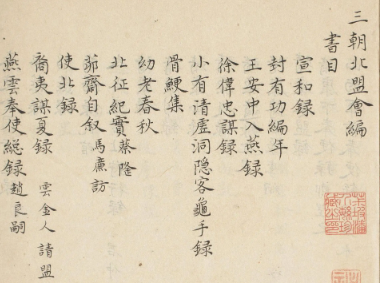 三朝北盟會編
書目
宣和錄
封有功編年
王安中入燕録
徐偉忠謀録
小有清虛洞隐客龜手録
骨鯁集
幼老春秋
北征紀實 蔡隆
茆齋自叙 馬廉訪
使北録
裔夷謀夏録 雲金人請盟
燕雲奉使總録 趙良嗣